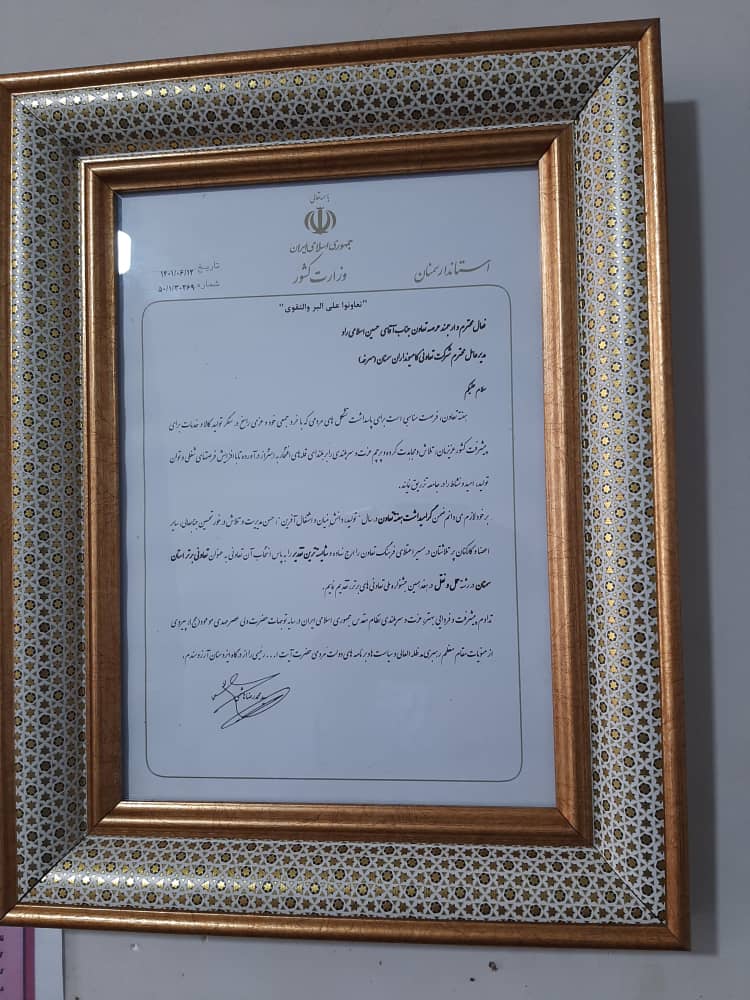 باسمه تعالی
جمهوری اسلامی ایران
وزارت کشور
استاندار سمنان
تاریخ ۱۴۰۱/۰۶/۱۲
شماره ۵۰/۱/۳۰۲۶۹
"تعاونوا علی البر والتقوی"
فعال محترم و ارجمند عرصه تعاون جناب آقای حسین اسلامی راد
مدیرعامل محترم شرکت تعاونی کامیونداران سمنان (سمرند)
سلام علیکم
هفته تعاون، فرصت مناسبی است برای پاسداشت تشکل های مردمی که با خرد جمعی خود و عزمی راسخ در سنگر تولید کالا و خدمات برای
پیشرفت کشور عزیزمان، تلاش و مجاهدت کرده و پرچم عزت و سربلندی را بر بلندای قله های افتخار به اهتزاز درآورده تا با افزایش فرصتهای شغلی و توان
تولید، امید و نشاط را در جامعه تزریق نمایند.
بر خود لازم می دانم ضمن گرامیداشت هفته تعاون در سال "تولید، دانش بنیان و اشتغال آفرین"، حسن مدیریت و تلاش در خور تحسین جنابعالی، سایر
اعضا و کارکنان پر تلاشتان در مسیر اعتلای فرهنگ تعاون را ارج نهاده و شایسته ترین تقدیر را به پاس انتخاب آن تعاونی به عنوان تعاونی برتر استان
سمنان در رشته حمل و نقل در هفدهمین جشنواره ملی تعاونی های برتر، تقدیم نمایم.
تداوم پیشرفت و فردایی بهتر، عزت و سربلندی نظام مقدس جمهوری اسلامی ایران در سایه توجهات حضرت ولی عصر مهدی موعود (عج)، پیروی
از منویات مقام معظم رهبری مد ظله العالی و سیاست ها و برنامه های دولت مردمی حضرت آیت ا... رئیسی را از درگاه ایزد منان آرزومندم.
سید محمدرضا هاشمی